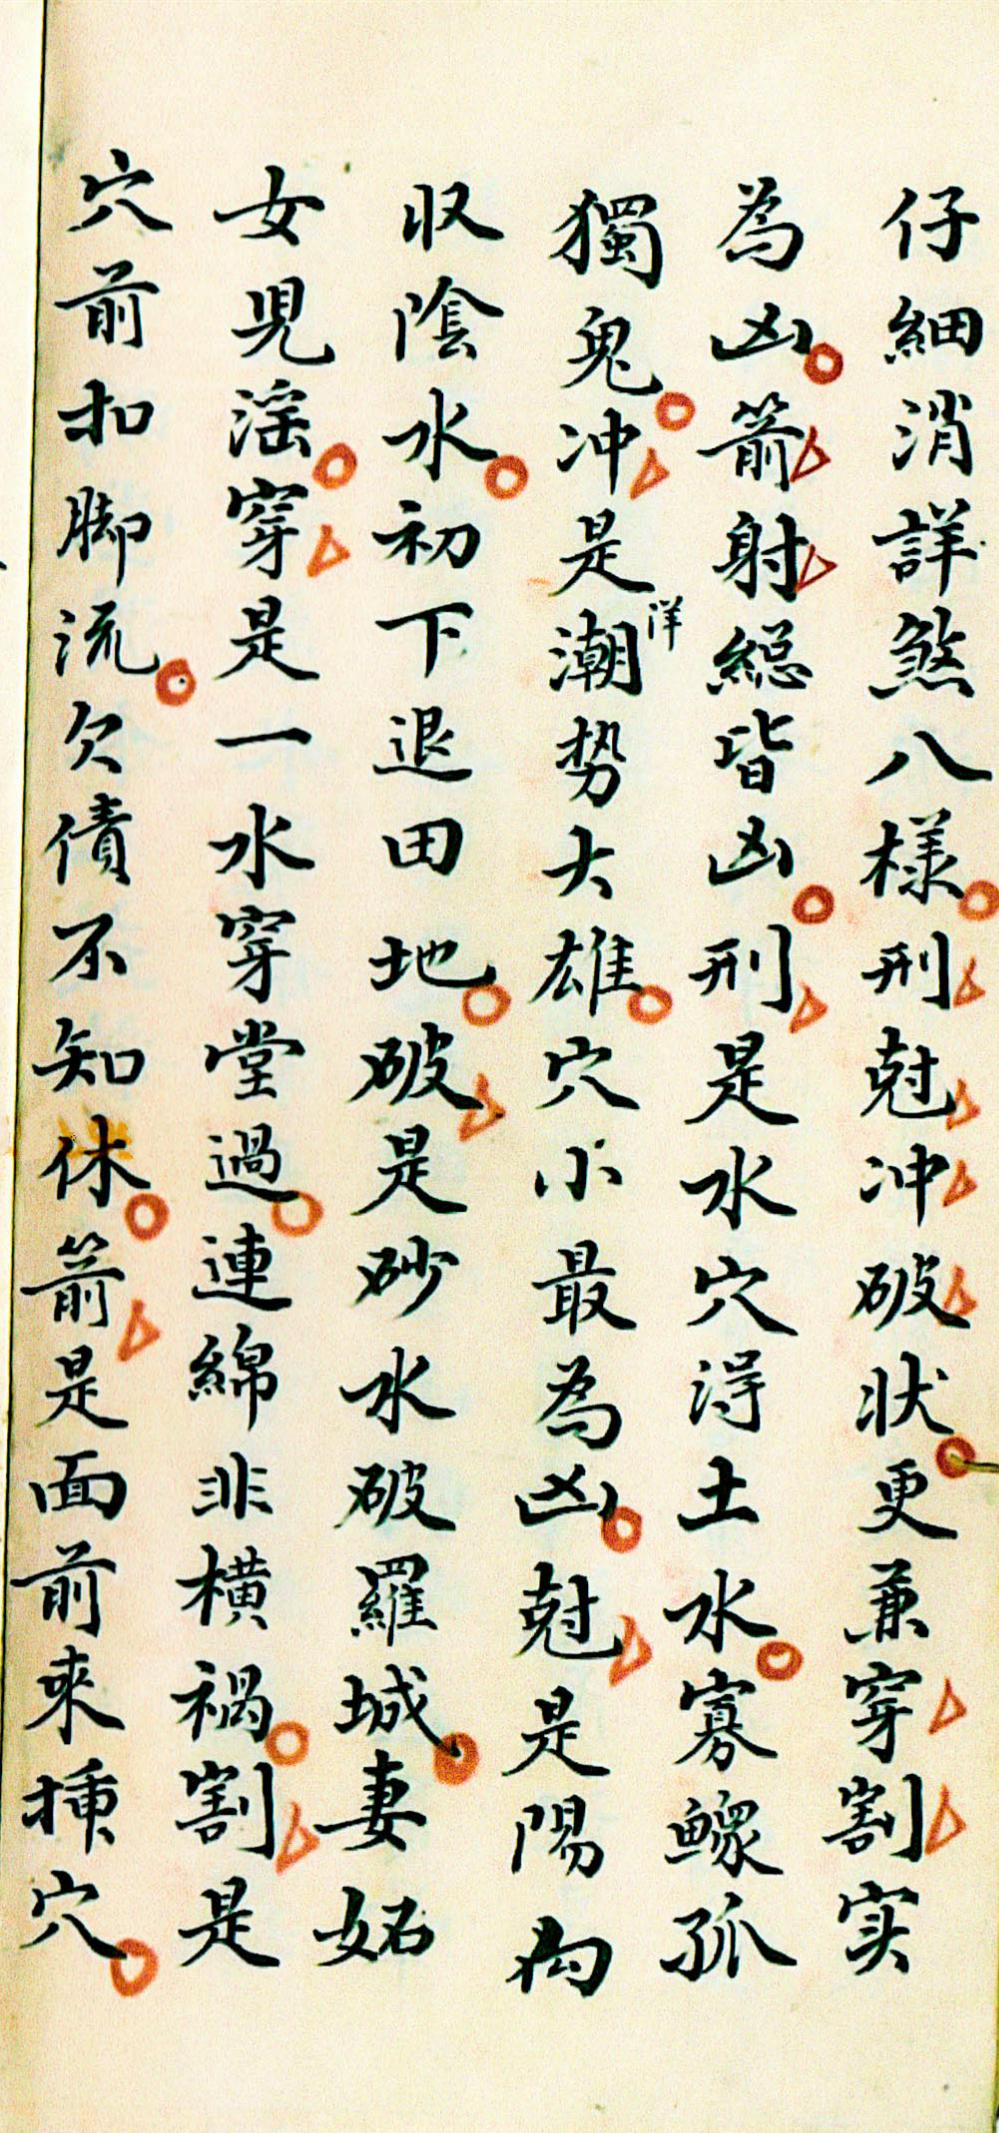 仔細消詳煞八樣刑尅冲破状更兼穿割实
為凶箭射総皆凶刑是水穴淂土水寡鰥孤
獨鬼冲是潮洋势大雄穴小最為凶尅是陽向
収陰水初下退田地破是砂水破羅城妻妬
女児滛穿是一水穿堂過連綿非横禍割是
穴前扣脚流欠債不知休箭是面前来揷穴